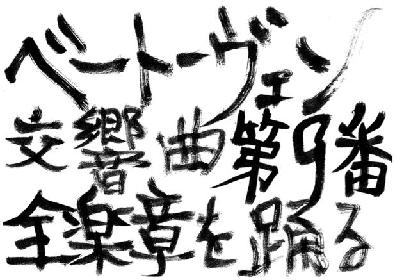 ベートーヴェン
交響曲第9番
全楽章を踊る